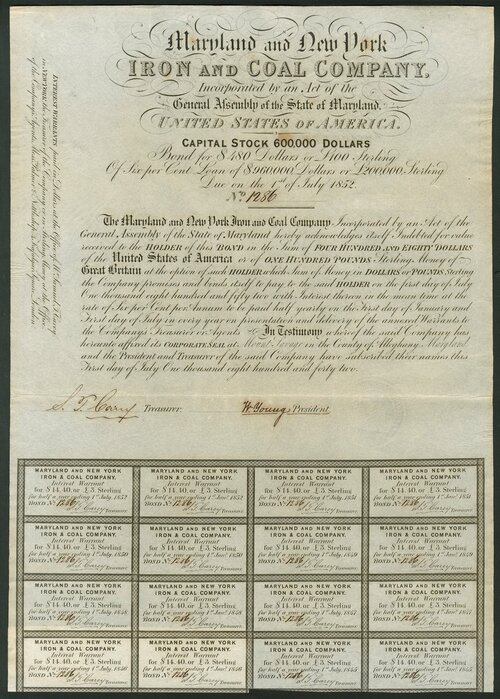 Maryland and New York
IRON AND COAL COMPANY,
Incorporated by an Act of the
General Assembly of the State of Maryland,
UNITED STATES OF AMERICA.
CAPITAL STOCK 600,000 DOLLARS
Bond for $480 Dollars or £100 Sterling
Of Six per Cent Loan of $960,000 Dollars or £200,000 Sterling
Due on the 1st of July 1852
No. 1286
The Maryland and New York Iron and Coal Company, Incorporated by an Act of the
General Assembly of the State of Maryland hereby acknowledges itself Indebted for value
received to the HOLDER of this BOND in the Sum of FOUR HUNDRED AND EIGHTY DOLLARS
of the United States of America or of ONE HUNDRED POUNDS Sterling Money of
Great Britain at the option of such HOLDER which Sum of Money in DOLLARS or POUNDS Sterling
the Company promises and binds itself to pay to the said HOLDER on the first day of July
One thousand eight hundred and fifty two with Interest thereon in the mean time at the
rate of Six per Cent per Annum to be paid half yearly on the first day of January and
First day of July in every year on presentation and delivery of the annexed Warrants to
the Companys Treasurer or Agents In Testimony whereof the said Company has
hereunto affixed its CORPORATE SEAL at Mount Savage in the County of Alleghany Maryland
and the President and Treasurer of the said Company have subscribed their names this
First day of July One thousand eight hundred and forty two.
S. T. Carry Treasurer. W. Young President.
MARYLAND AND NEW YORK
IRON & COAL COMPANY.
Interest Warrant
for $14.40. or £.3. Sterling
for half a year ending 1st July, 1852
BOND No. 1286 S. T. Carry TREASURER
MARYLAND AND NEW YORK
IRON & COAL COMPANY.
Interest Warrant
for $14.40. or £.3. Sterling
for half a year ending 1st Jany 1852
BOND No. 1286 S. T. Carry TREASURER
MARYLAND AND NEW YORK
IRON & COAL COMPANY.
Interest Warrant
for $14.40. or £.3. Sterling
for half a year ending 1st July 1851
BOND No. 1286 S. T. Carry TREASURER
MARYLAND AND NEW YORK
IRON & COAL COMPANY.
Interest Warrant
for $14.40. or £.3. Sterling
for half a year ending 1st Jany 1851
BOND No. 1286 S. T. Carry TREASURER
MARYLAND AND NEW YORK
IRON & COAL COMPANY.
Interest Warrant
for $14.40. or £.3. Sterling
for half a year ending 1st July 1850
BOND No. 1286 S. T. Carry TREASURER
MARYLAND AND NEW YORK
IRON & COAL COMPANY.
Interest Warrant
for $14.40. or £.3. Sterling
for half a year ending 1st Jany 1850
BOND No. 1286 S. T. Carry TREASURER
MARYLAND AND NEW YORK
IRON & COAL COMPANY.
Interest Warrant
for $14.40. or £.3. Sterling
for half a year ending 1st July 1849
BOND No. 1286 S. T. Carry TREASURER
MARYLAND AND NEW YORK
IRON & COAL COMPANY.
Interest Warrant
for $14.40. or £.3. Sterling
for half a year ending 1st Jany 1849
BOND No. 1286 S. T. Carry TREASURER
MARYLAND AND NEW YORK
IRON & COAL COMPANY.
Interest Warrant
for $14.40. or £.3. Sterling
for half a year ending 1st July 1848
BOND No. 1286 S. T. Carry TREASURER
MARYLAND AND NEW YORK
IRON & COAL COMPANY.
Interest Warrant
for $14.40. or £.3. Sterling
for half a year ending 1st Jany 1848
BOND No. 1286 S. T. Carry TREASURER
MARYLAND AND NEW YORK
IRON & COAL COMPANY.
Interest Warrant
for $14.40. or £.3. Sterling
for half a year ending 1st July 1847
BOND No. 1286 S. T. Carry TREASURER
MARYLAND AND NEW YORK
IRON & COAL COMPANY.
Interest Warrant
for $14.40. or £.3. Sterling
for half a year ending 1st Jany 1847
BOND No. 1286 S. T. Carry TREASURER
MARYLAND AND NEW YORK
IRON & COAL COMPANY.
Interest Warrant
for $14.40. or £.3. Sterling
for half a year ending 1st July 1846
BOND No. 1286 S. T. Carry TREASURER
MARYLAND AND NEW YORK
IRON & COAL COMPANY.
Interest Warrant
for $14.40. or £.3. Sterling
for half a year ending 1st Jany 1846
BOND No. 1286 S. T. Carry TREASURER
MARYLAND AND NEW YORK
IRON & COAL COMPANY.
Interest Warrant
for $14.40. or £.3. Sterling
for half a year ending 1st July 1845
BOND No. 1286 S. T. Carry TREASURER
MARYLAND AND NEW YORK
IRON & COAL COMPANY.
Interest Warrant
for $14.40. or £.3. Sterling
for half a year ending 1st Jany 1845
BOND No. 1286 S. T. Carry TREASURER
INTEREST WARRANTS paid in Dollars at the Office of
in NEW YORK
of the Companys Agents